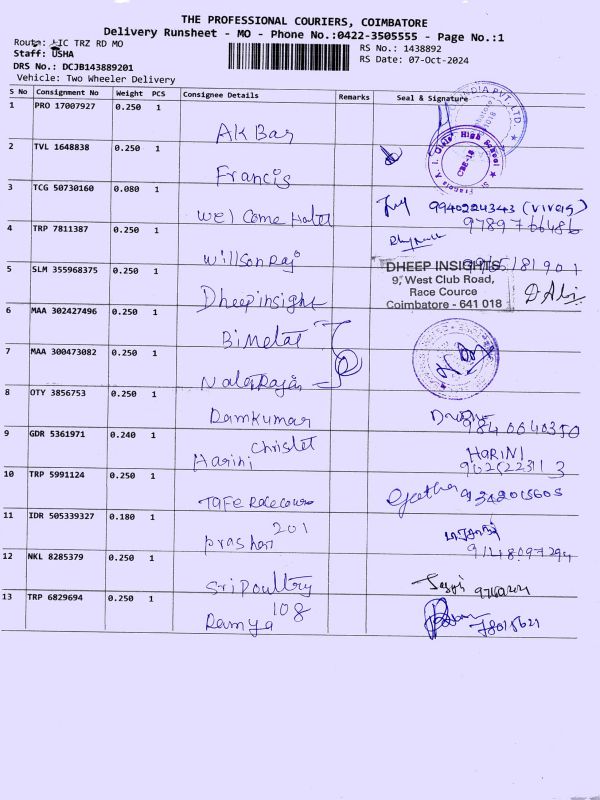 THE PROFESSIONAL COURIERS, COIMBATORE
Delivery Runsheet - MO - Phone No.:0422-3505555 - Page No.:1
Route: LIC TRZ RD MO
RS No.: 1438892
Staff: USHA
RS Date: 07-Oct-2024
DRS No.: DCJB143889201
Vehicle: Two Wheeler Delivery
S No Consignment No Weight PCS Consignee Details Remarks Seal & Signature
1 PRO 17007927 0.250 1 Ak Bar
INDIA PVT. LTD.
2 TVL 1648838 0.250 1 Francis
Girls' High School
CBE-18
3 TCG 50730160 0.080 1 Wel Come Hotel 9940224343 (Vivek)
4 TRP 7811387 0.250 1 Willson Raj
9789766486
5 SLM 355968375 0.250 1 Dheepinsight
DHEEP INSIGHTS
9, West Club Road,
Race Cource
Coimbatore - 641 018
6 MAA 302427496 0.250 1 Bimetal
7 MAA 300473082 0.250 1 Natarajan
8 OTY 3856753 0.250 1 Ramkumar
9840640350
9 GDR 5361971 0.240 1 Harini Chrislet
HARINI
10 TRP 5991124 0.250 1 Tafe Racecourse
Geetha 9342015605
11 IDR 505339327 0.180 1 prashan 201
9148097294
12 NKL 8285379 0.250 1 Sri Poultry
13 TRP 6829694 0.250 1 Ramya 108